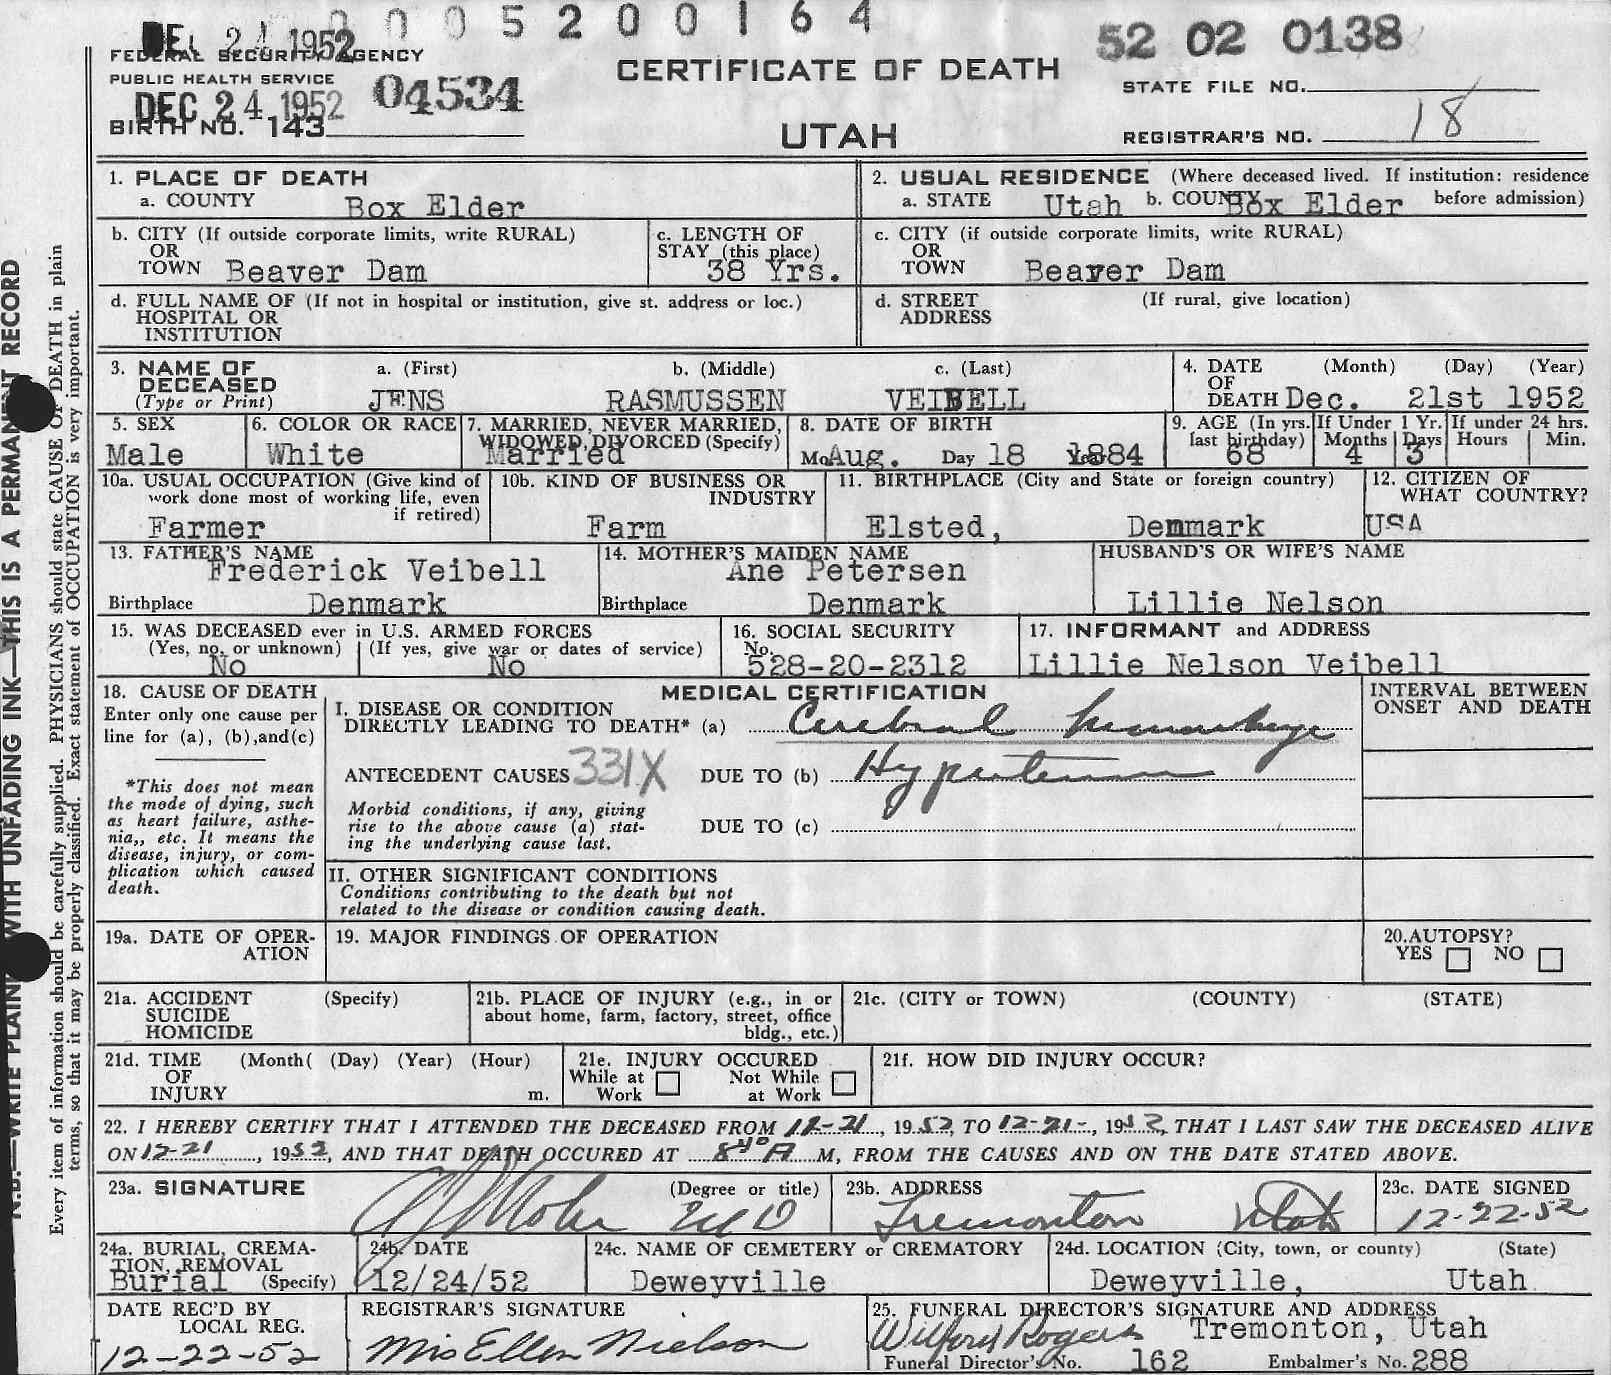 0005200164
DEC 24 1952
52 02 0138
FEDERAL SECURITY AGENCY
PUBLIC HEALTH SERVICE
CERTIFICATE OF DEATH
STATE FILE NO.
DEC 24 1952 04534
BIRTH NO. 143
UTAH
REGISTRAR'S NO. 18
N.B.—WRITE PLAINLY WITH UNFADING INK—THIS IS A PERMANENT RECORD
Every item of information should be carefully supplied. PHYSICIANS should state CAUSE OF DEATH in plain
terms, so that it may be properly classified. Exact statement of OCCUPATION is very important.
1. PLACE OF DEATH
a. COUNTY Box Elder
2. USUAL RESIDENCE (Where deceased lived. If institution: residence
a. STATE Utah b. COUNTY Box Elder before admission)
b. CITY (If outside corporate limits, write RURAL)
OR
TOWN Beaver Dam
c. LENGTH OF
STAY (this place)
38 Yrs.
c. CITY (if outside corporate limits, write RURAL)
OR
TOWN Beaver Dam
d. FULL NAME OF (If not in hospital or institution, give st. address or loc.)
HOSPITAL OR
INSTITUTION
d. STREET (If rural, give location)
ADDRESS
3. NAME OF a. (First) b. (Middle) c. (Last)
DECEASED
(Type or Print) JENS RASMUSSEN VEIBELL
4. DATE (Month) (Day) (Year)
OF
DEATH Dec. 21st 1952
5. SEX
Male
6. COLOR OR RACE
White
7. MARRIED, NEVER MARRIED,
WIDOWED, DIVORCED (Specify)
Married
8. DATE OF BIRTH
Mo. Aug. Day 18 Year 1884
9. AGE (In yrs.
last birthday)
68
If Under 1 Yr.
Months Days
4 3
If under 24 hrs.
Hours Min.
10a. USUAL OCCUPATION (Give kind of
work done most of working life, even
if retired)
Farmer
10b. KIND OF BUSINESS OR
INDUSTRY
Farm
11. BIRTHPLACE (City and State or foreign country)
Elsted, Denmark
12. CITIZEN OF
WHAT COUNTRY?
USA
13. FATHER'S NAME
Frederick Veibell
Birthplace Denmark
14. MOTHER'S MAIDEN NAME
Ane Petersen
Birthplace Denmark
HUSBAND'S OR WIFE'S NAME
Lillie Nelson
15. WAS DECEASED ever in U.S. ARMED FORCES
(Yes, no, or unknown) (If yes, give war or dates of service)
No No
16. SOCIAL SECURITY
No.
528-20-2312
17. INFORMANT and ADDRESS
Lillie Nelson Veibell
18. CAUSE OF DEATH
Enter only one cause per
line for (a), (b),and(c)
*This does not mean
the mode of dying, such
as heart failure, asthe-
nia,, etc. It means the
disease, injury, or com-
plication which caused
death.
MEDICAL CERTIFICATION
I. DISEASE OR CONDITION
DIRECTLY LEADING TO DEATH* (a) Cerebral hemorrhage
ANTECEDENT CAUSES 331X DUE TO (b) Hypertension
Morbid conditions, if any, giving
rise to the above cause (a) stat-
ing the underlying cause last.
DUE TO (c)
II. OTHER SIGNIFICANT CONDITIONS
Conditions contributing to the death but not
related to the disease or condition causing death.
INTERVAL BETWEEN
ONSET AND DEATH
19a. DATE OF OPER-
ATION
19. MAJOR FINDINGS OF OPERATION
20. AUTOPSY?
YES NO
21a. ACCIDENT (Specify)
SUICIDE
HOMICIDE
21b. PLACE OF INJURY (e.g., in or
about home, farm, factory, street, office
bldg., etc.)
21c. (CITY or TOWN) (COUNTY) (STATE)
21d. TIME (Month( (Day) (Year) (Hour)
OF
INJURY m.
21e. INJURY OCCURED
While at Not While
Work at Work
21f. HOW DID INJURY OCCUR?
22. I HEREBY CERTIFY THAT I ATTENDED THE DECEASED FROM 12-21, 1952, TO 12-21-, 1952, THAT I LAST SAW THE DECEASED ALIVE
ON 12-21, 1952, AND THAT DEATH OCCURED AT 8 40 A M, FROM THE CAUSES AND ON THE DATE STATED ABOVE.
23a. SIGNATURE (Degree or title)
MD
23b. ADDRESS
Tremonton Utah
23c. DATE SIGNED
12-22-52
24a. BURIAL, CREMA-
TION, REMOVAL
Burial (Specify)
24b. DATE
12/24/52
24c. NAME OF CEMETERY or CREMATORY
Deweyville
24d. LOCATION (City, town, or county) (State)
Deweyville, Utah
DATE REC'D BY
LOCAL REG.
12-22-52
REGISTRAR'S SIGNATURE
Mis Ellen Nielson
25. FUNERAL DIRECTOR'S SIGNATURE AND ADDRESS
Wilford Rogers Tremonton, Utah
Funeral Director's No. 162 Embalmer's No. 288